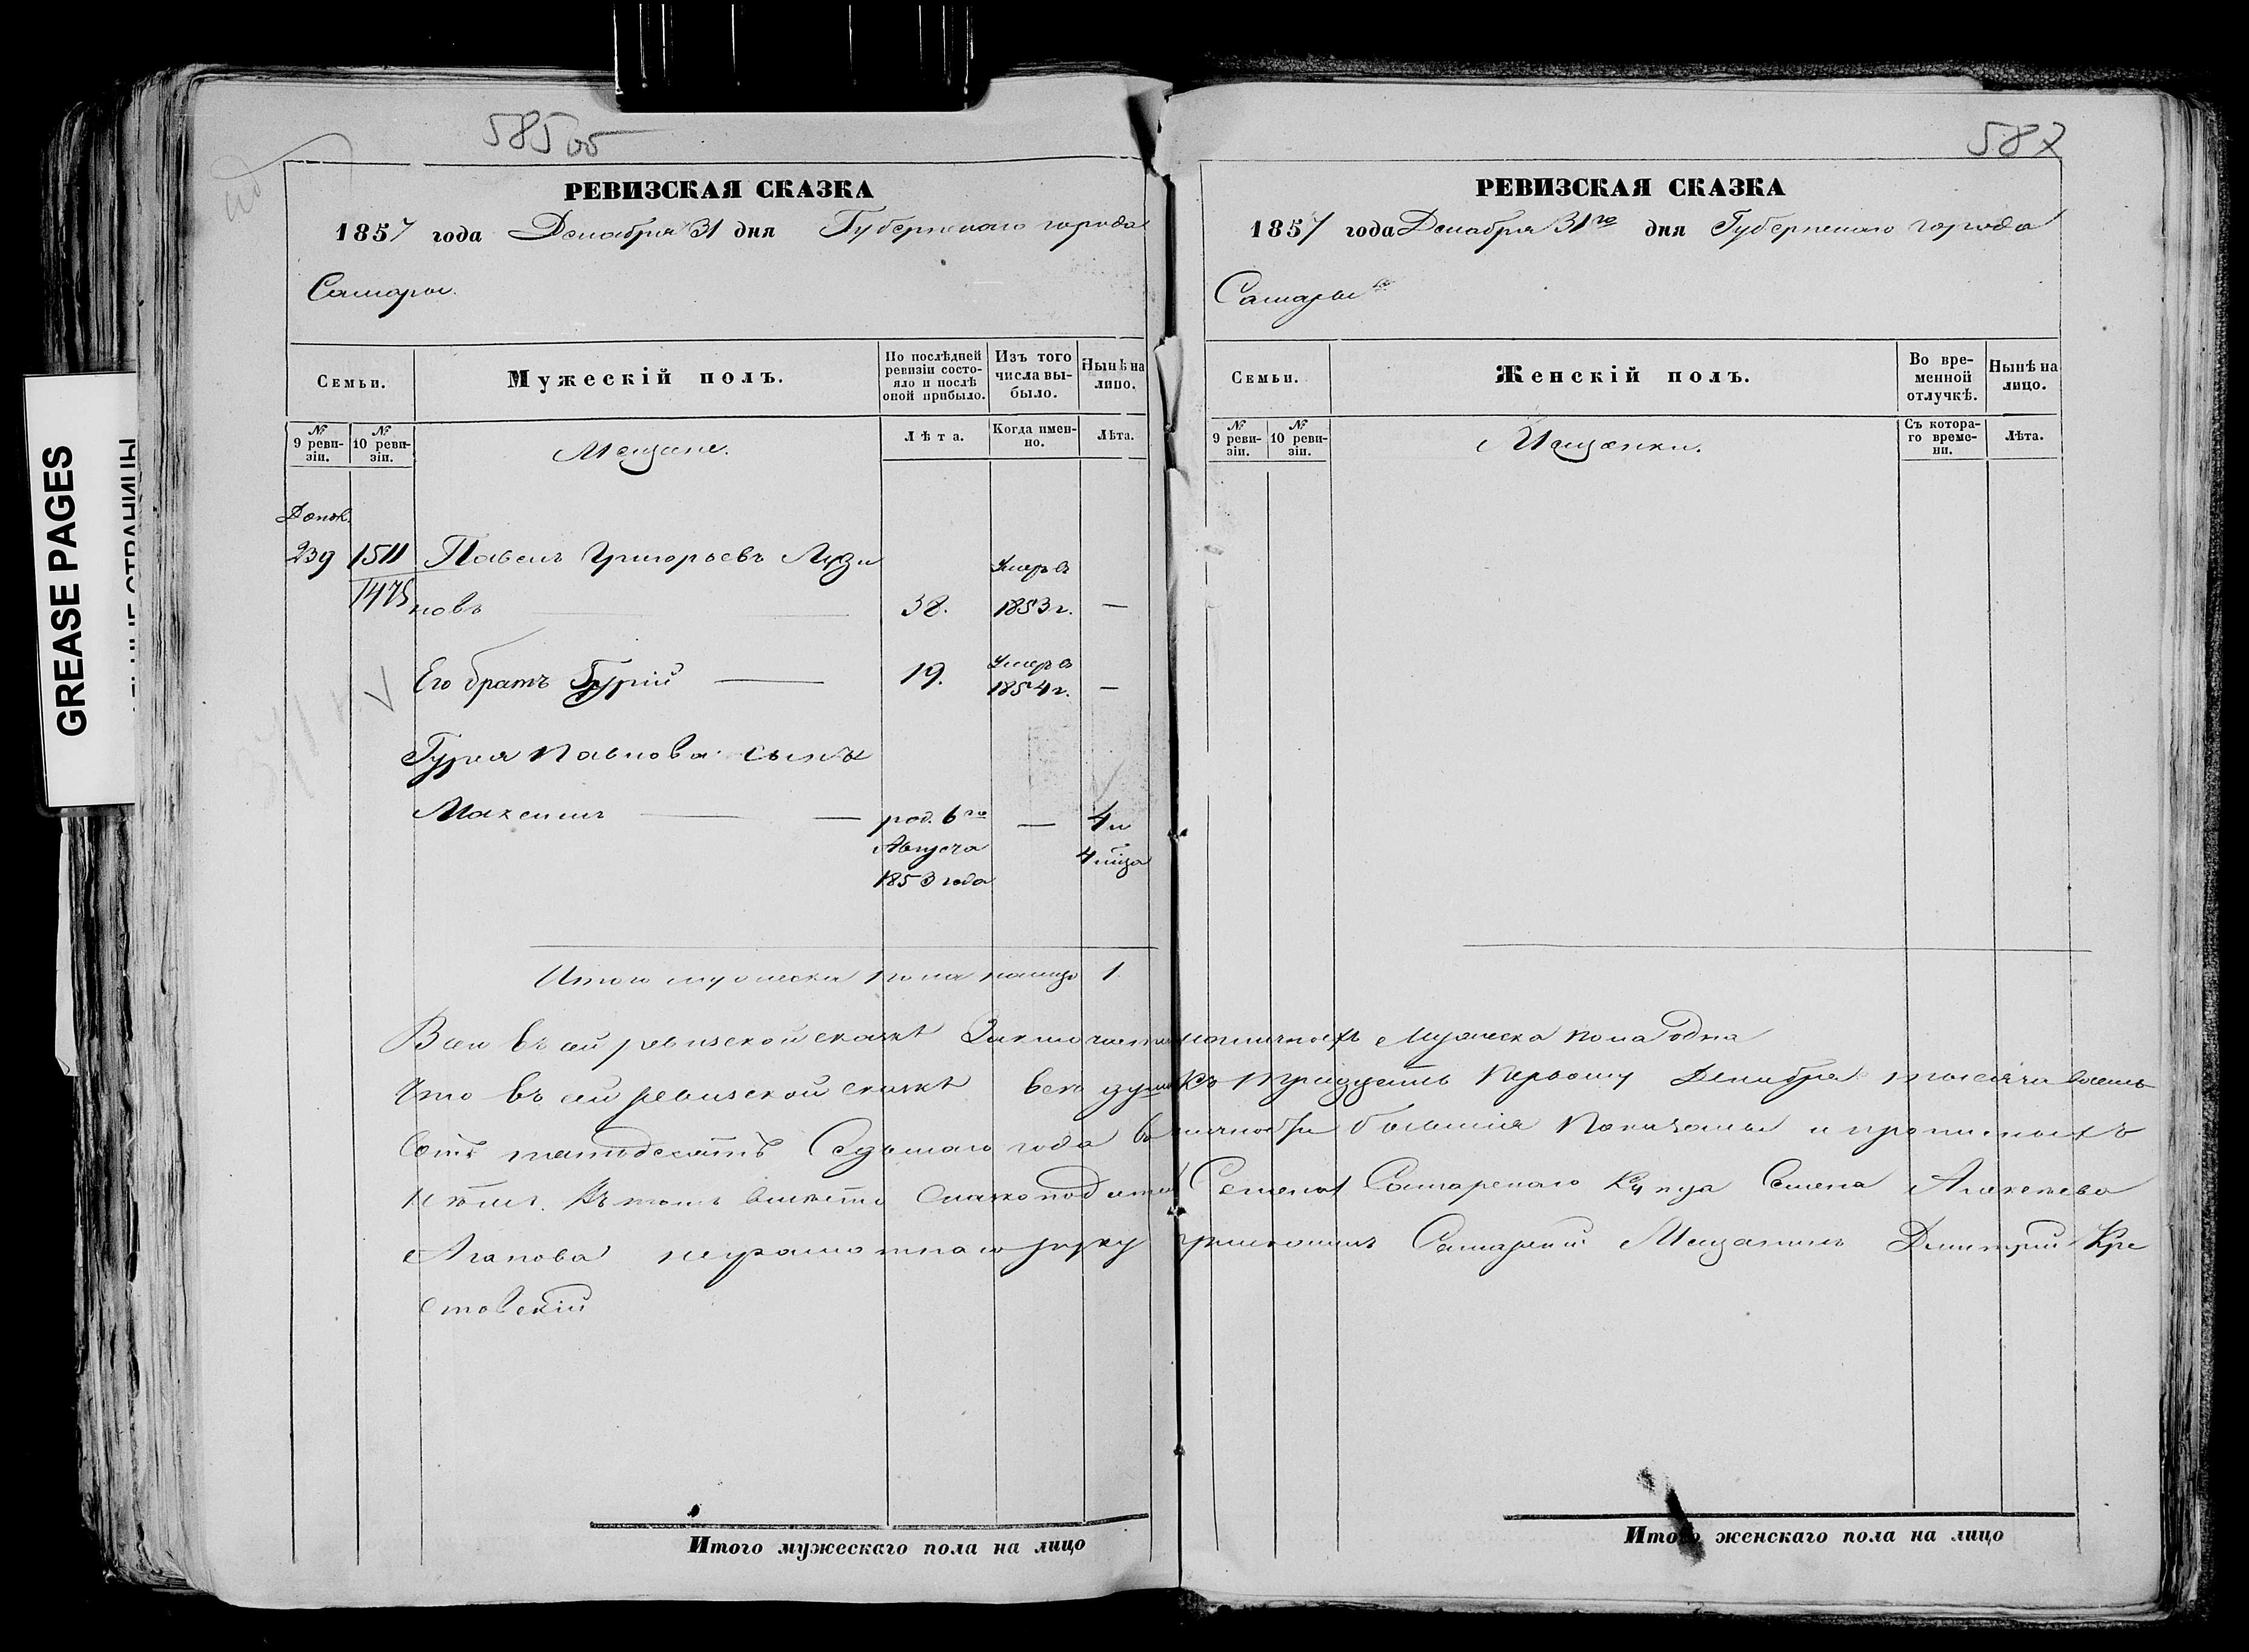 585 об
РЕВИЗСКАЯ СКАЗКА
1857 года Декабря 31 дня Губернскаго города
Самары.
Семьи.
Мужескій полъ.
По послѣдней ревизіи состояло и послѣ оной прибыло.
Изъ того числа выбыло.
Нынѣ на лицо.
№ 9 ревизіи.
№ 10 ревизіи.
Мещане.
Лѣта.
Когда именно.
Лѣта.
239 1511 Павелъ Григорьевъ Лузи
1475 новъ 38. Умеръ въ 1853 г. —
Его братъ Гурій 19. Умеръ въ 1854 г. —
Гурія Павлова сынъ
Максимъ род. 6го Августа 1853 года — 4 и 4 мца
Итого мужеска пола налицо 1
587
РЕВИЗСКАЯ СКАЗКА
1857 года Декабря 31го дня Губернскаго города
Самары
Семьи.
Женскій полъ.
Во временной отлучкѣ.
Нынѣ на лицо.
№ 9 ревизіи.
№ 10 ревизіи.
Мещанки.
Съ котораго времени.
Лѣта.
Всей въ сей ревизской сказкѣ наличныхъ Мужеска пола одна
Что въ сей ревизской сказкѣ всѣ души къ Тридцать Первому Декабря тысяча восемь
Сотъ пятьдесятъ Седьмаго года въ наличности бывшія Показаны и прописныхъ
нѣтъ. Въ томъ вместо Самарскаго Купца Семена Алексеева
Агапова неграмотнаго руку приложилъ Самарскій Мещанинъ Дмитрій Кре
стовскій
Итого мужескаго пола на лицо
Итого женскаго пола на лицо
GREASE PAGES